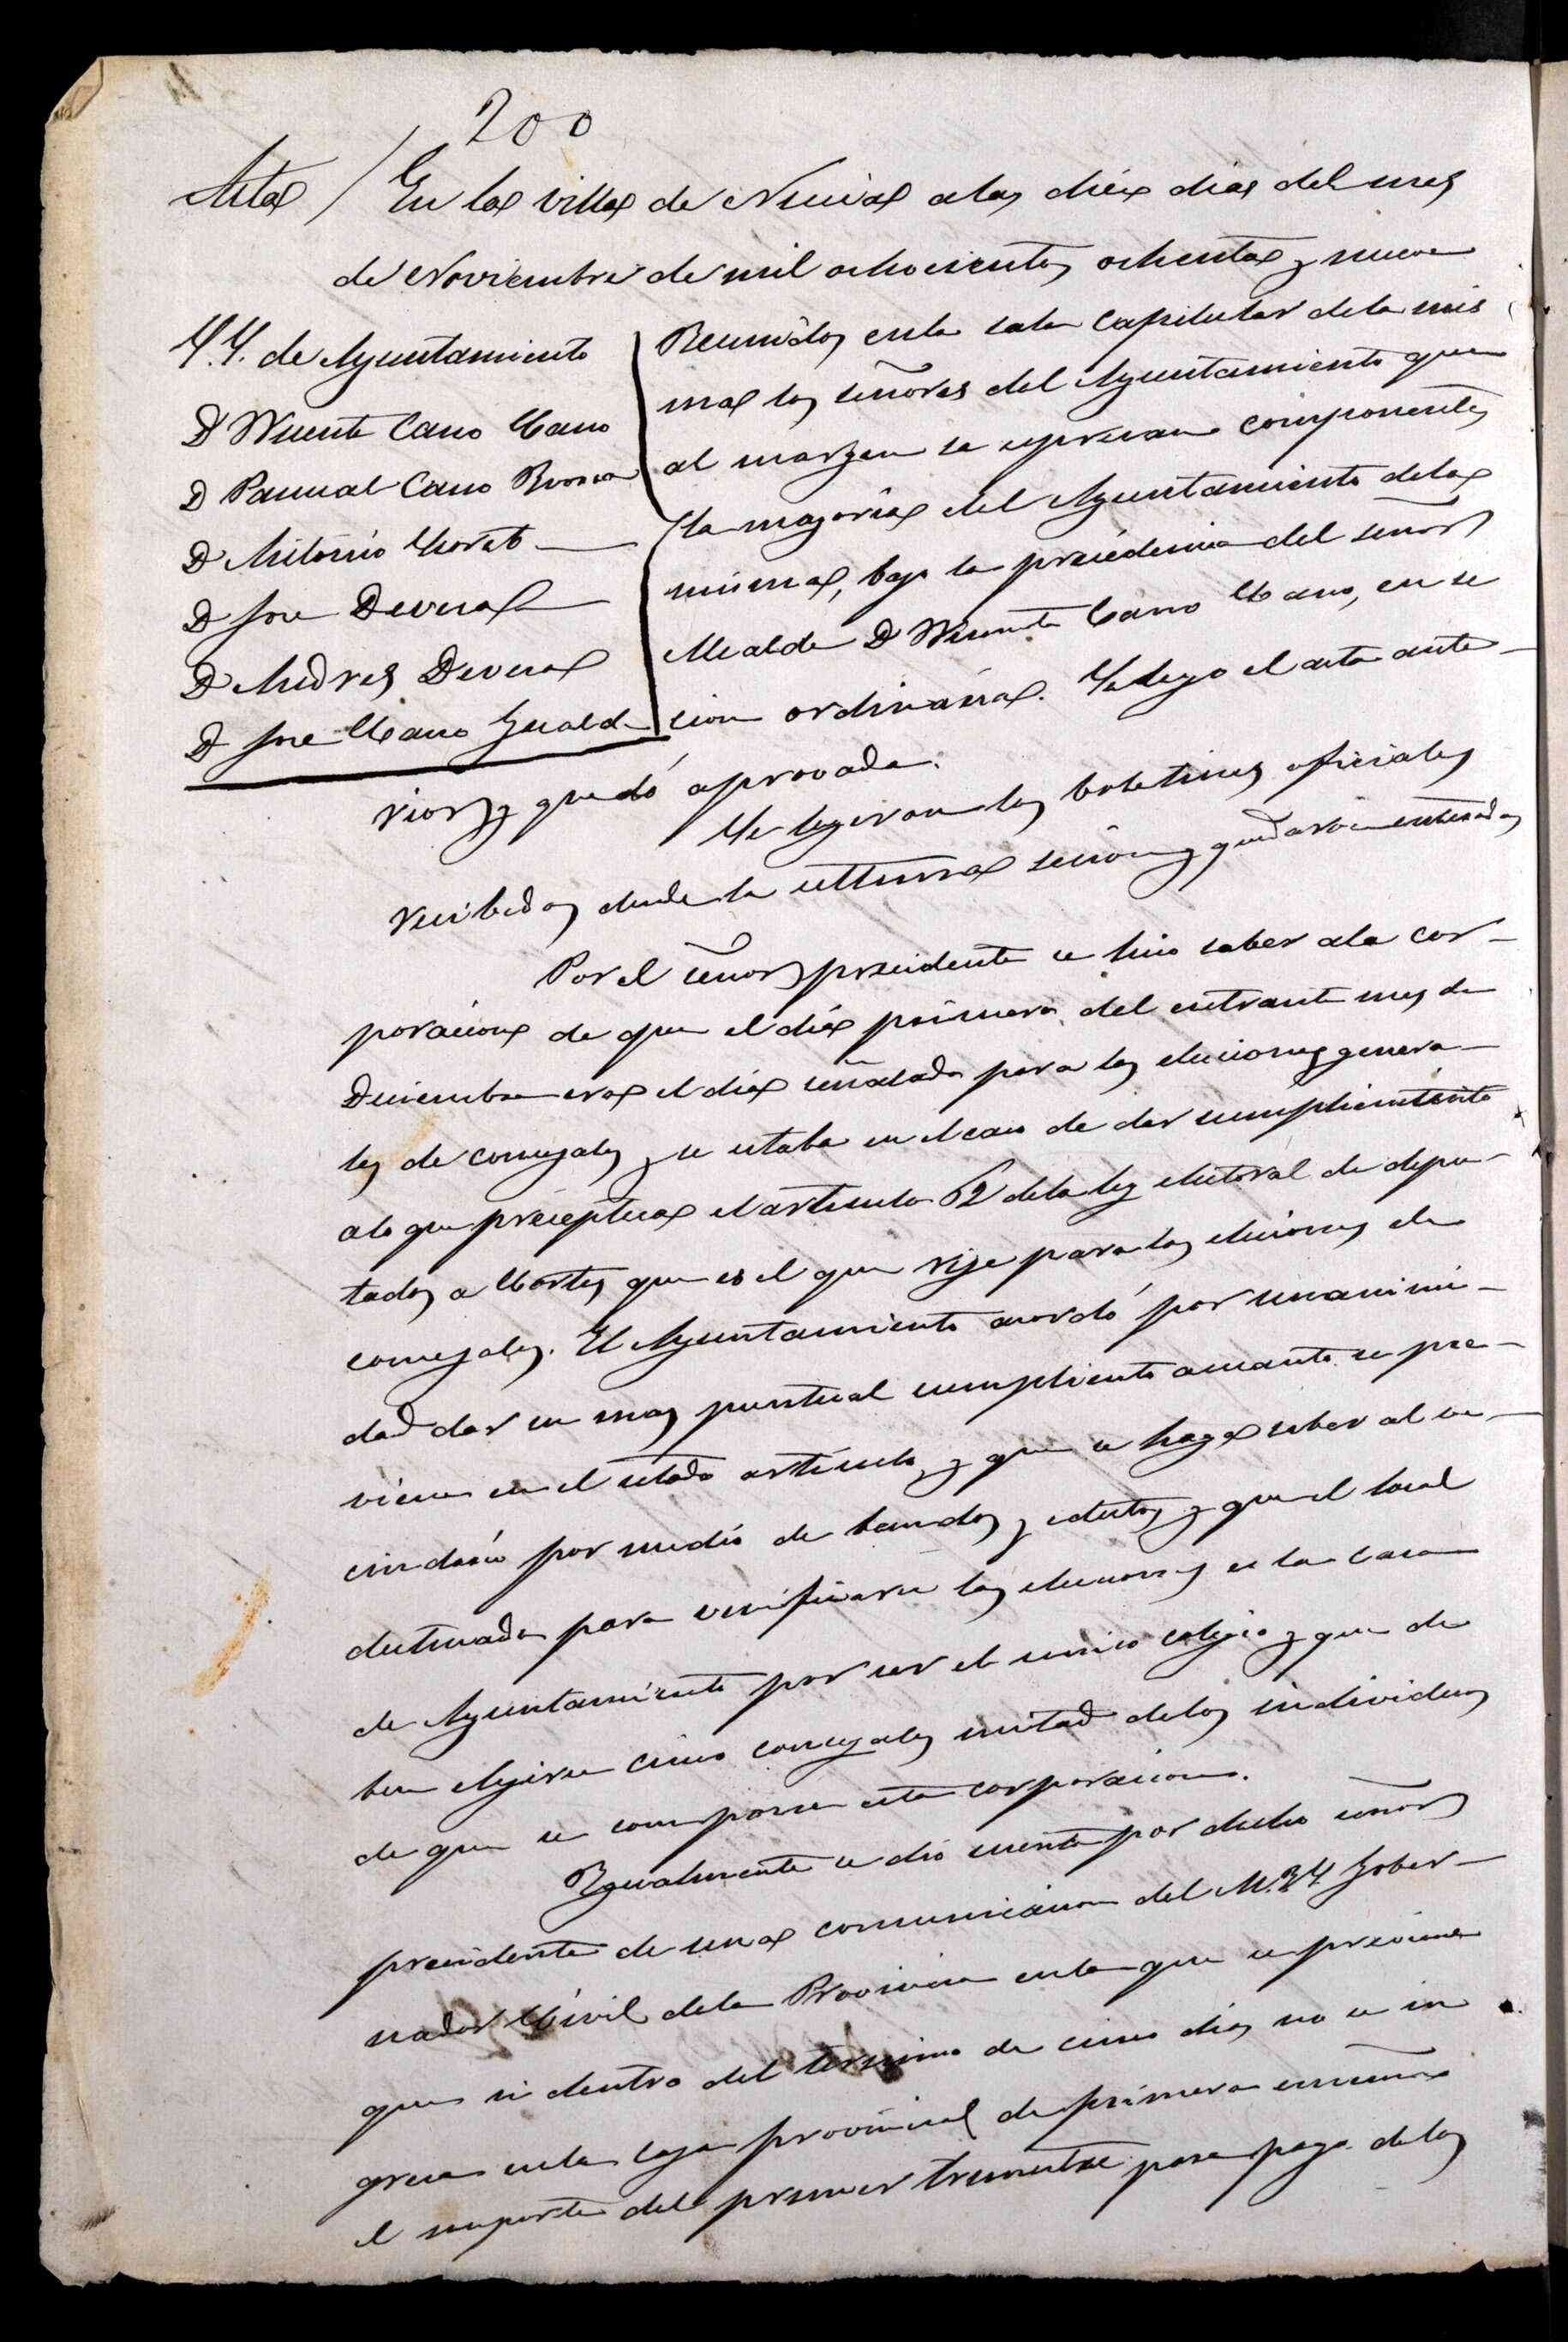 200
Acta / En la villa de Nucia a los diez dias del mes
de Noviembre de mil ochocientos ochenta y nueve
S.S. de Ayuntamiento
D Vicente Cano Cano
D Pascual Cano
D Antonio Lloret
D Jose Devesa
D Andres Devesa
D Jose Cano
Reunidos en la sala capitular de la mis
ma los señores del Ayuntamiento que
al margen se espresan componentes
la mayoria del Ayuntamiento de la
misma, bajo la presidencia del señor
Alcalde D Vicente Cano Cano, en se
sion ordinaria. Se leyo el acta ante-
rior y quedó aprovada.
Se leyeron los boletines oficiales
recibidos desde la ultima sesion y quedaron enterados
Por el señor presidente se hizo saber a la cor-
poracion de que el dia primero del entrante mes de
Diciembre era el dia señalado para las elecciones genera-
les de concejales y se estaba en el caso de dar cumplimiento
a lo que preceptua el articulo 62 de la ley electoral de dipu-
tados a Cortes que es el que rije para las elecciones de
concejales. El Ayuntamiento acordó por unanimi-
dad dar su mas puntual cumpliento a cuanto se pre-
viene en el citado articulo y que se haga saber al ve-
cindario por medio de bandos y edictos y que el local
destinado para verificarse las elecciones es la casa
de Ayuntamiento por ser el unico colegio y que de
ben elegirse cinco concejales mitad de los individuos
de que se compone esta corporacion.
Ygualmente se dió cuenta por dicho señor
presidente de una comunicacion del M.Y.S. Gober-
nador Civil de la Provincia en la que se previene
que si dentro del termino de cinco dias no se in
gresa en la caja provincial de primera enseñanza
el importe del primer trimestre para pago de los